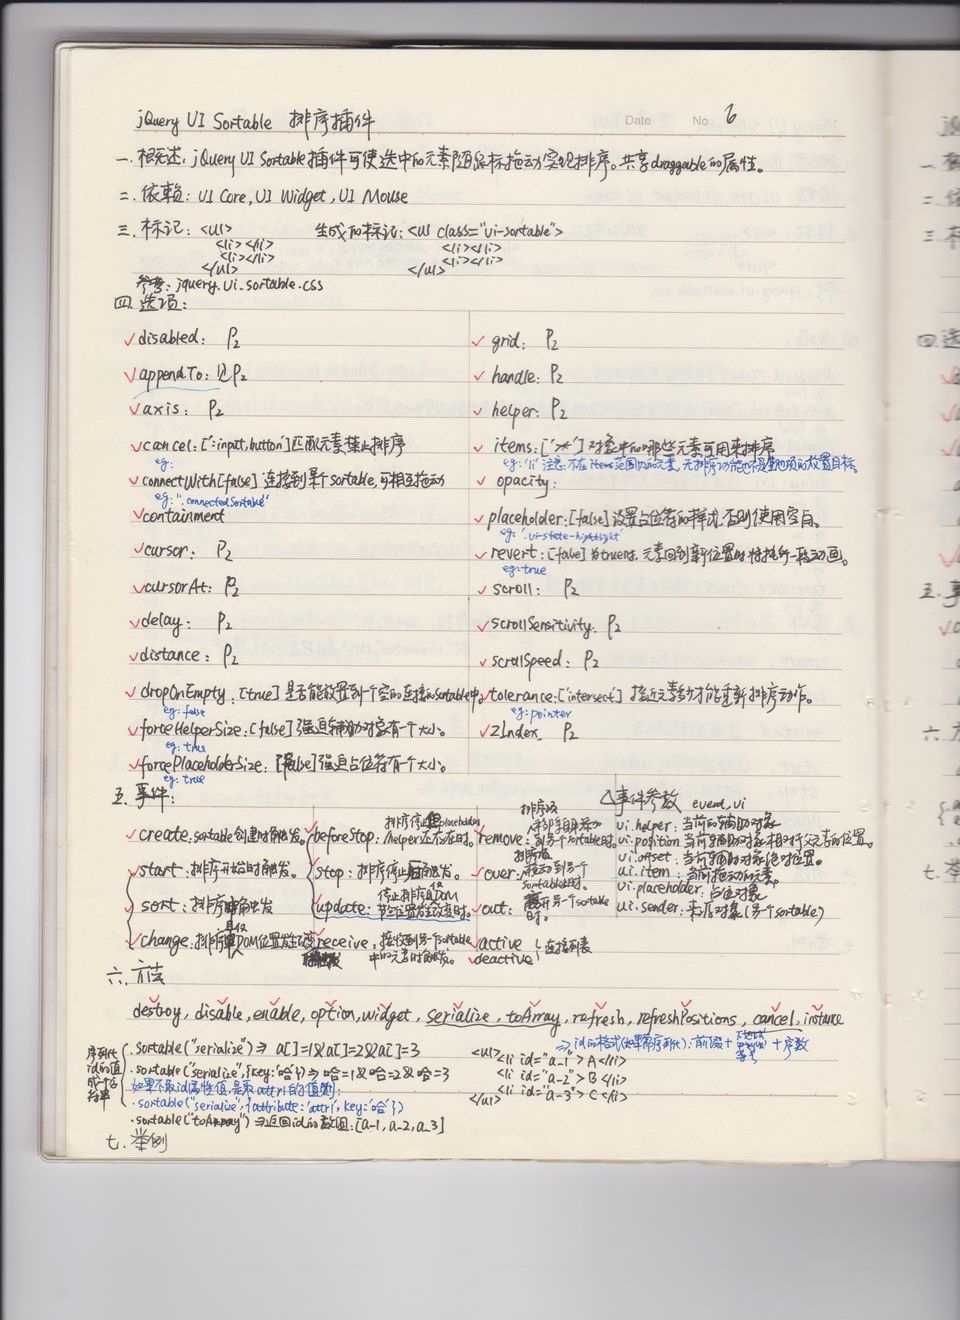 jQuery UI Sortable 排序插件
Date No 6
一. 概述. jQuery UI Sortable插件可使选中的元素随鼠标拖动实现排序。共享draggable的属性。
二. 依赖: UI Core, UI Widget, UI Mouse
三. 标记: <ul> 生成的标记: <ul class="ui-sortable">
<li></li> <li></li>
<li></li> <li></li>
</ul> </ul>
参考: jquery.ui.sortable.css
四. 选项:
disabled: P2
appendTo: 见P2
axis: P2
cancel: [':input,button']匹配元素禁止排序
eg:
connectWith[false] 连接到某个sortable, 可相互拖动
eg: ".connectedSortable"
containment
cursor: P2
cursorAt: P2
delay: P2
distance: P2
dropOnEmpty: [true] 是否能放置到一个空的连接的sortable中。
eg: false
forceHelperSize: [false]强迫辅助对象有个大小。
eg: true
forcePlaceholderSize: [false]强迫占位符有个大小。
eg: true
grid: P2
handle: P2
helper: P2
items: ['>*'] 对象中的哪些元素可用来排序
eg: 'li' 注意: 不在items范围内的元素, 无排序功能也不是其他项的放置目标
opacity:
placeholder: [false] 设置占位符的样式, 否则使用空白。
eg: '.ui-state-highlight'
revert: [false] 为true时, 元素回到新位置时将执行一段动画。
eg: true
scroll: P2
scrollSensitivity. P2
scrollSpeed: P2
tolerance: ['intersect'] 接近元素多少才能重新排序动作。
eg: pointer
zIndex. P2
五. 事件:
create: sortable创建时触发。
start: 排序开始时触发。
sort: 排序时触发
change: 排序且仅DOM位置发生改变
beforeStop: 排序停止但placeholder/helper还存在时。
stop: 排序停止后触发。
update: 停止排序且DOM节点位置发生改变时。
receive, 接收到另一个sortable中的元素时触发。
remove: 到另个sortable时。
over: 拖动到另个sortable时。
out: 离开另一个sortable时。
active
deactive 连接列表
△事件参数 event, ui
ui.helper: 当前的辅助对象
ui.position 当前辅助对象相对父元素的位置。
ui.offset: 当前辅助对象绝对位置。
ui.item: 当前拖动的元素。
ui.placeholder: 占位对象
ui.sender: 来源对象(另个sortable)
六. 方法
destroy, disable, enable, option, widget, serialize, toArray, refresh, refreshPositions, cancel, instance
=> id的格式(如果需序列化): 前缀+ +序数
序列化id的值成一个字符串
.sortable("serialize") => a[]=1&a[]=2&a[]=3
.sortable("serialize", {key:'哈'}) => 哈=1&哈=2&哈=3
如果不取id属性值, 是取attr的值则:
.sortable("serialize", {attribute:'attr', key:'哈'})
.sortable("toArray") => 返回id的数组: [a-1, a-2, a-3]
<ul>
<li id="a-1">A</li>
<li id="a-2">B</li>
<li id="a-3">C</li>
</ul>
七. 举例